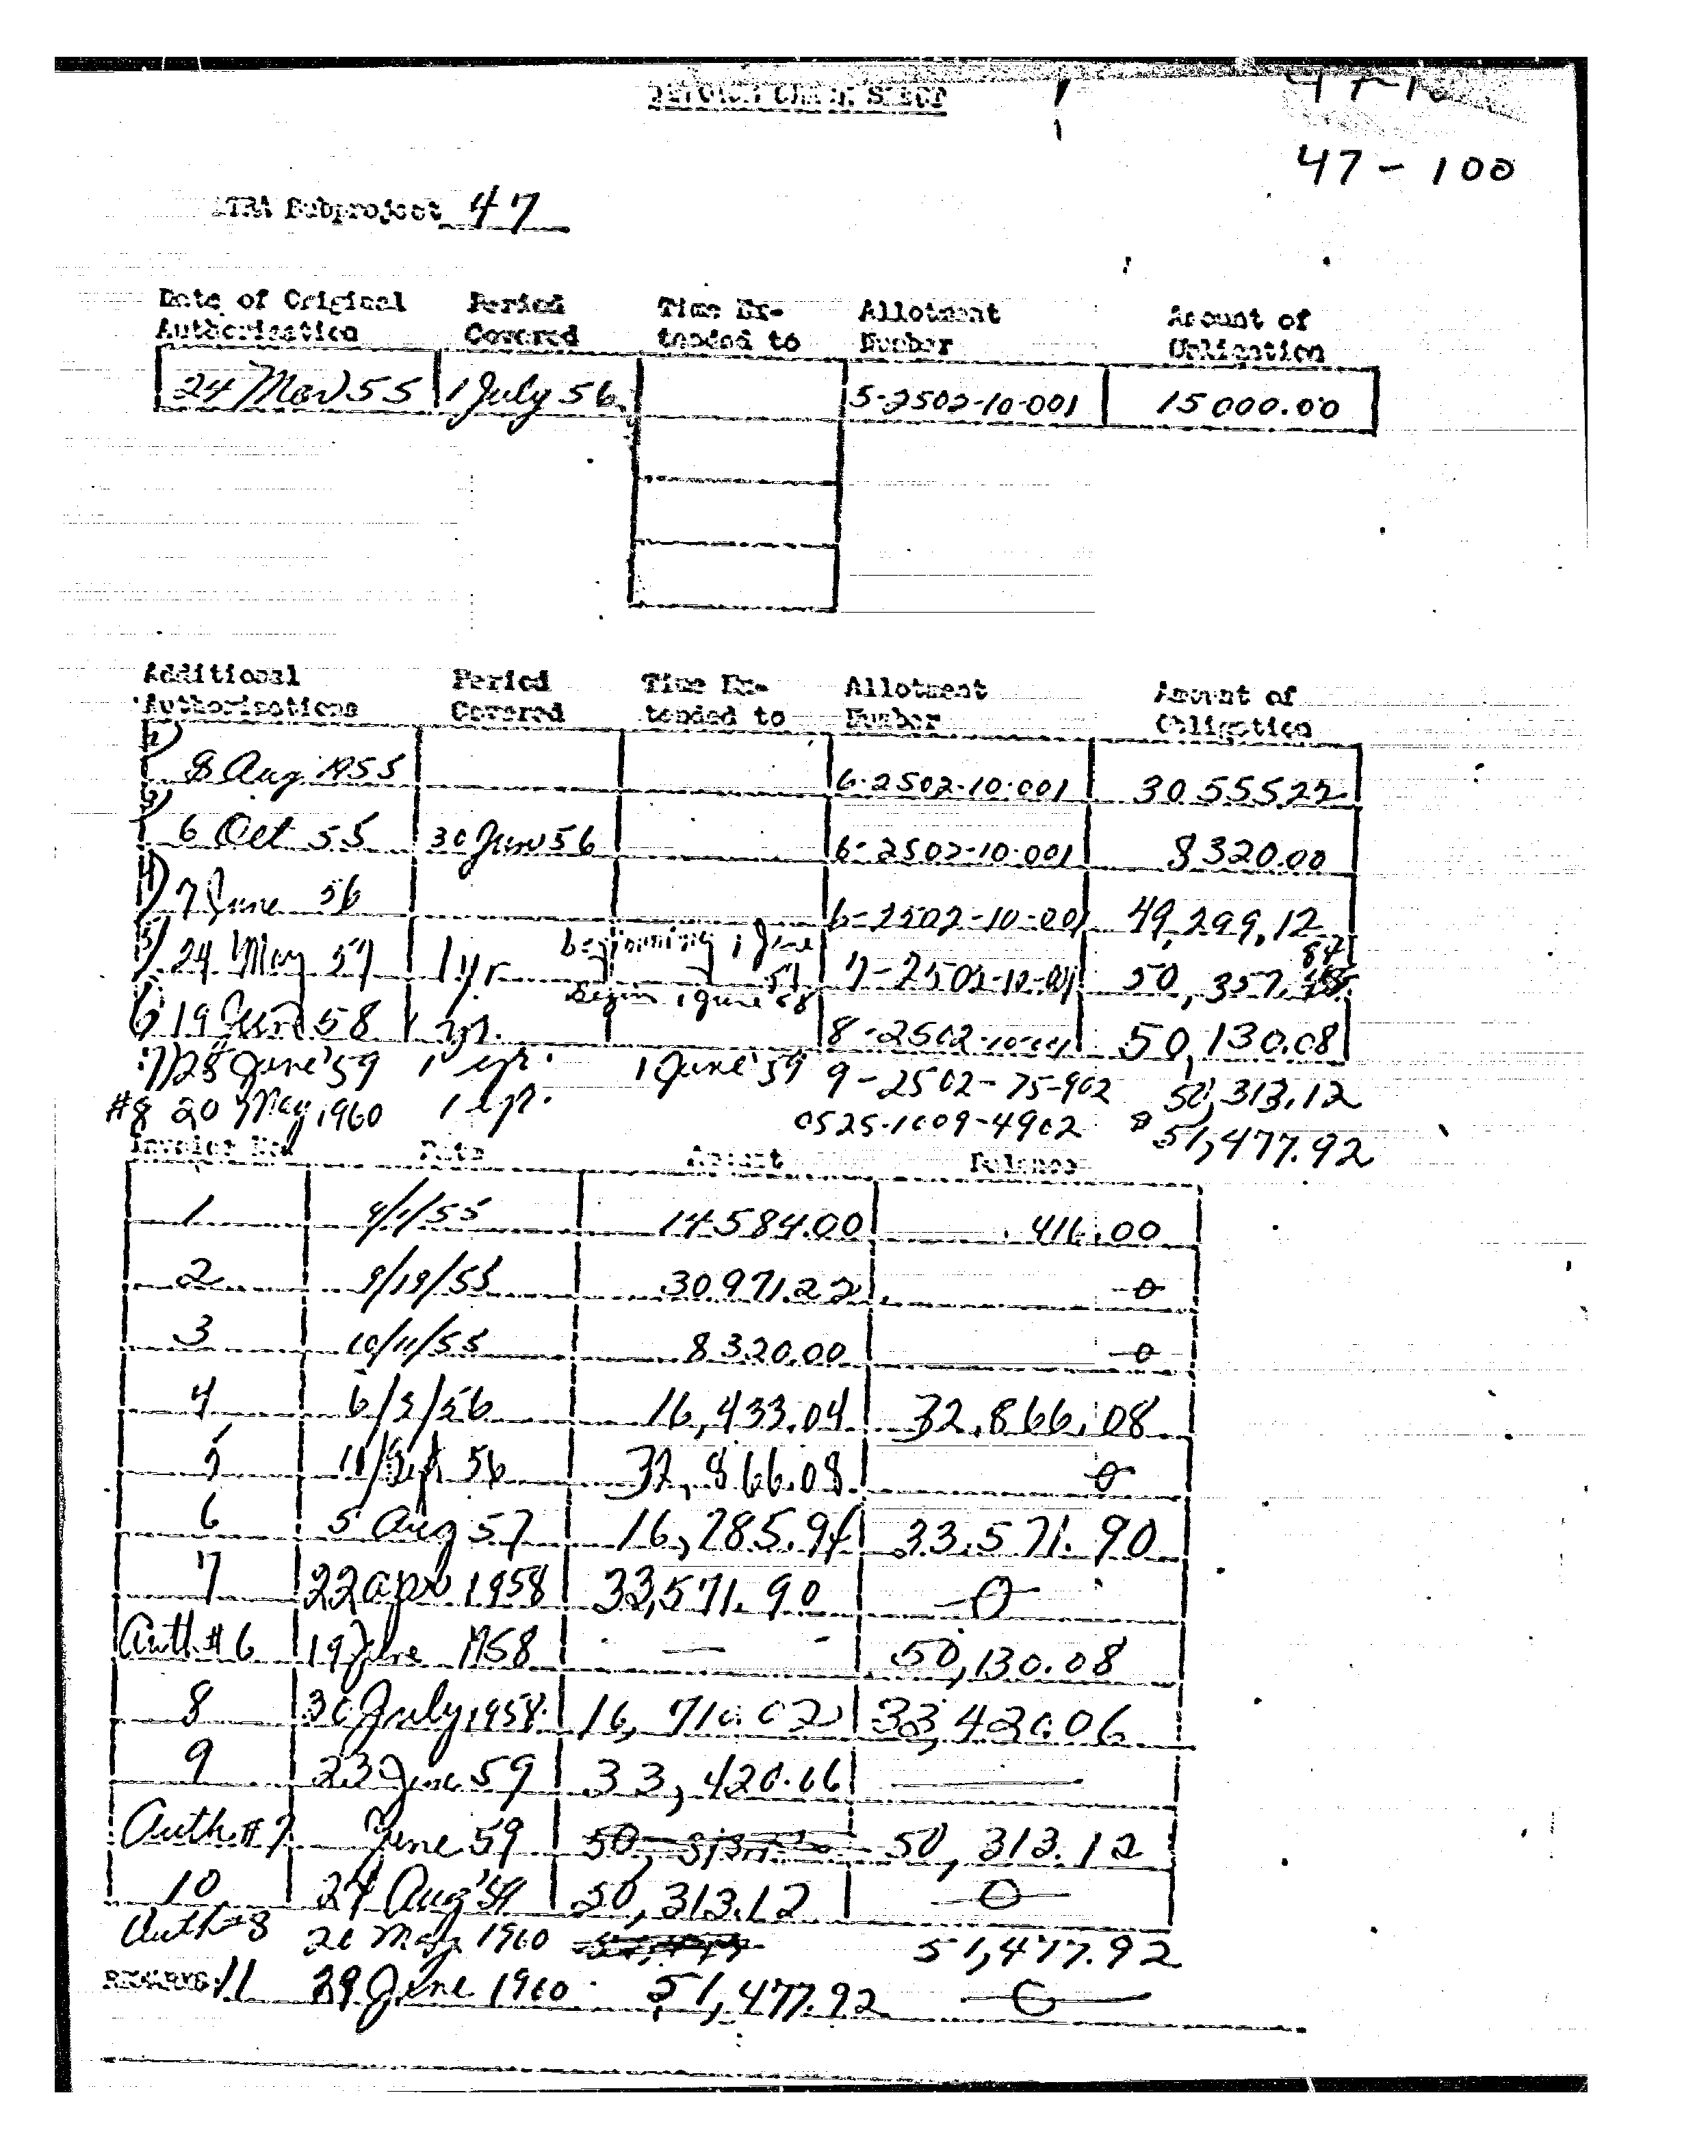 47-100
Subproject 47
Date of Original Period Time Ex- Allotment Amount of
Authorization Covered tended to Number Obligation
24 Mar 55 1 July 56 5-2502-10-001 15000.00
Additional Period Time Ex- Allotment Amount of
Authorizations Covered tended to Number Obligation
2) 8 Aug 1955 6-2502-10-001 30555.22
3) 6 Oct 55 30 Jun 56 6-2502-10-001 8320.00
4) 7 June 56 6-2502-10-001 49,299.12
5) 24 May 57 1 yr beginning 1 June 57 7-2502-10-001 50,357.84
6) 19 June 58 1 yr. Begin 1 June 58 8-2502-10-001 50,130.08
7) 28 June '59 1 yr. 1 June '59 9-2502-75-902 50,313.12
#8 20 May 1960 1 yr. 0525-1009-4902 $51,477.92
Invoice No. Date Amount Balance
1 14584.00 416.00
2 9/19/55 30971.22 0
3 10/11/55 8320.00 0
4 16,433.04 32,866.08
5 11/Sept 56 32,866.08 0
6 5 Aug 57 16,785.94 33,571.90
7 22 apr 1958 33,571.90 0
Auth #6 19 June 1958 — 50,130.08
8 30 July 1958 16,710.02 33,420.06
9 23 June 59 33,420.06 —
Auth #7 June 59 50,313.12
10 24 Aug '59 50,313.12 0
Auth #8 20 May 1960 51,477.92
REMARKS: 11 29 June 1960 51,477.92 0